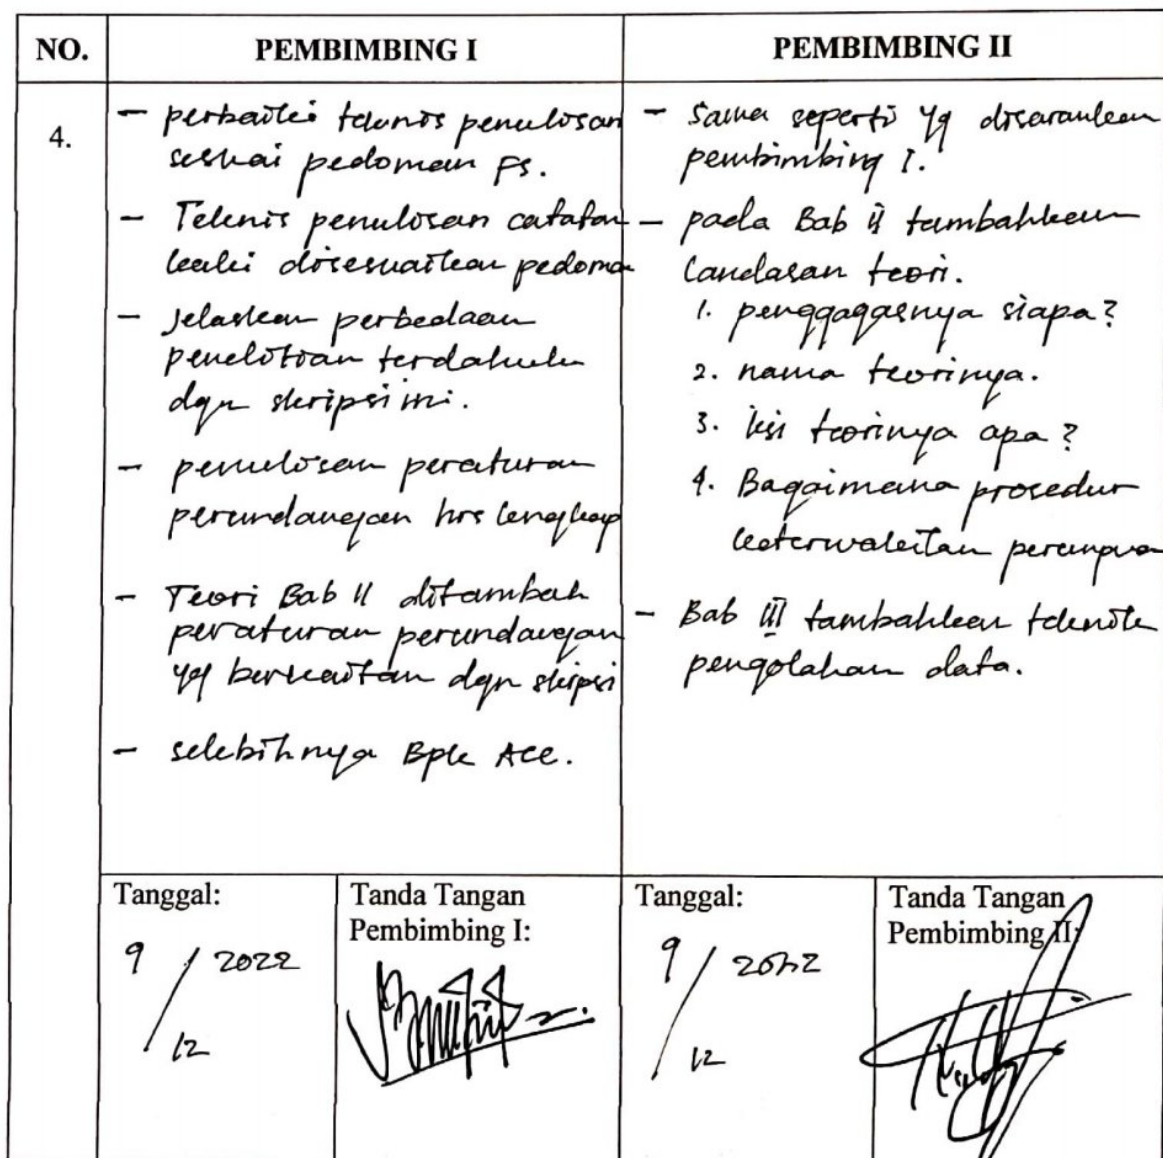 NO.
PEMBIMBING I
PEMBIMBING II
4.
- perbaiki teknis penulisan
sesuai pedoman FS.
- Teknis penulisan catatan
kaki disesuaikan pedoman
- Jelaskan perbedaan
penelitian terdahulu
dgn skripsi ini.
- penulisan peraturan
perundangan hrs lengkap
- Teori Bab II ditambah
peraturan perundangan
yg berkaitan dgn skripsi
- selebihnya Bpk Acc.
- Sama seperti yg disarankan
pembimbing I.
- pada Bab II tambahkan
landasan teori.
1. penggagasnya siapa?
2. nama teorinya.
3. isi teorinya apa?
4. Bagaimana prosedur
keterwakilan perempuan
- Bab III tambahkan teknik
pengolahan data.
Tanggal:
9 / 2022
12
Tanda Tangan
Pembimbing I:
Tanggal:
9 / 2022
12
Tanda Tangan
Pembimbing II: